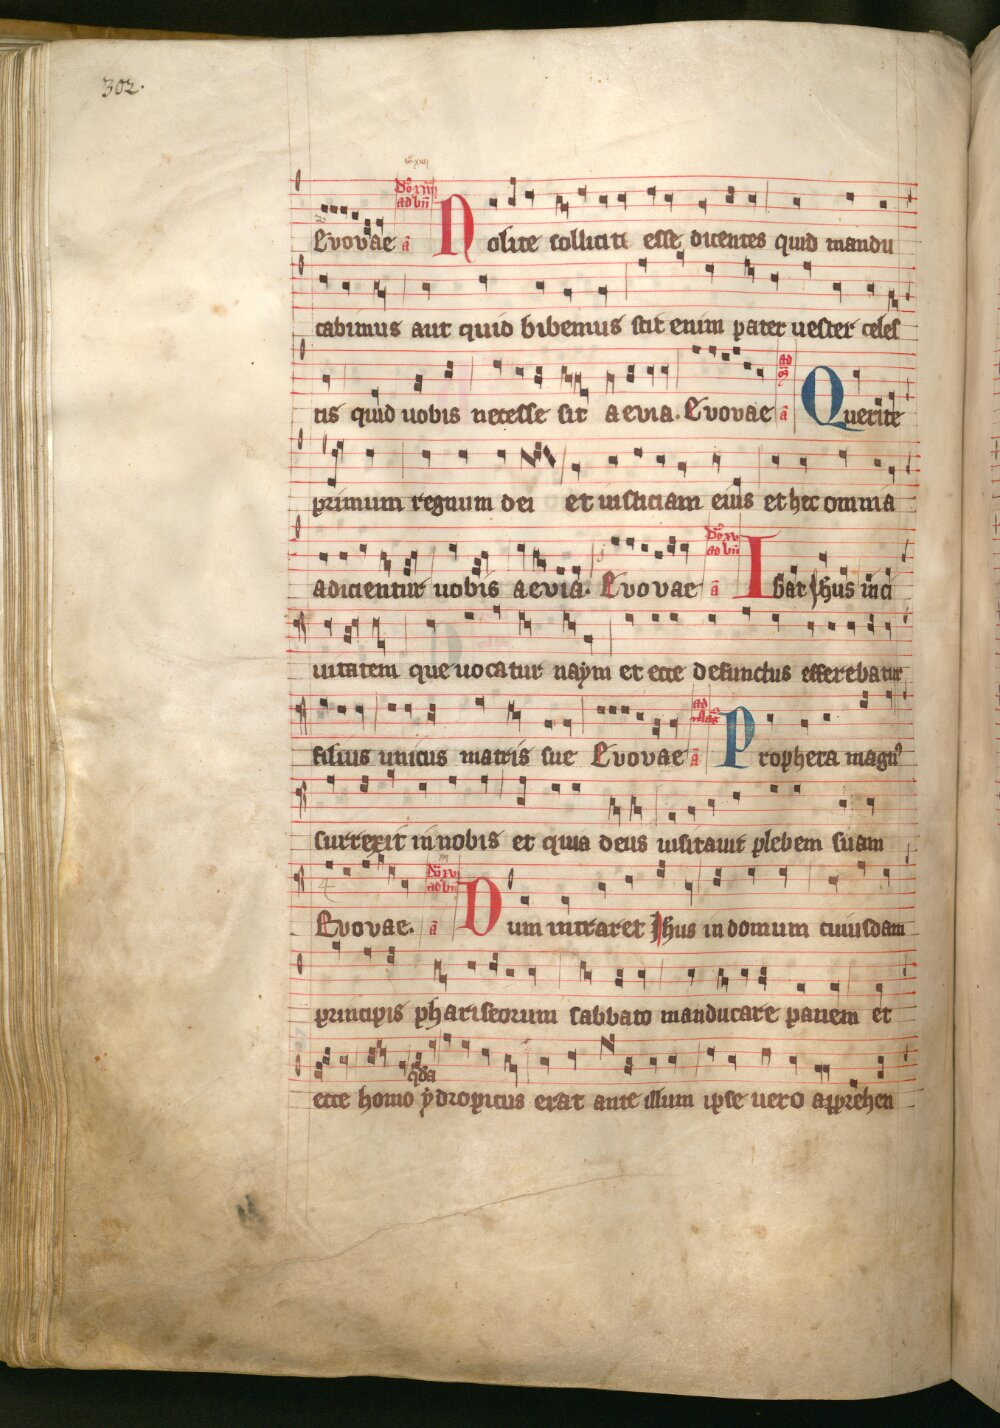 302.
Evovae a Nolite solliciti esse dicentes quid mandu
cabimus aut quid bibemus scit enim pater uester celes
tis quid uobis necesse sit aevia. Evovae a Querite
primum regnum dei et iusticiam eius et hec omnia
adicientur uobis aevia. Evovae a Ibat Jhus in ci
uitatem que uocatur naym et ecce defunctus efferebatur
filius unicus matris sue Evovae a Propheta magn⁹
surrexit in nobis et quia deus uisitauit plebem suam
Evovae. a Dum intraret Jhus in domum cuiusdam
principis phariseorum sabbato manducare panem et
qda
ecce homo ydropicus erat ante illum ipse uero apprehen